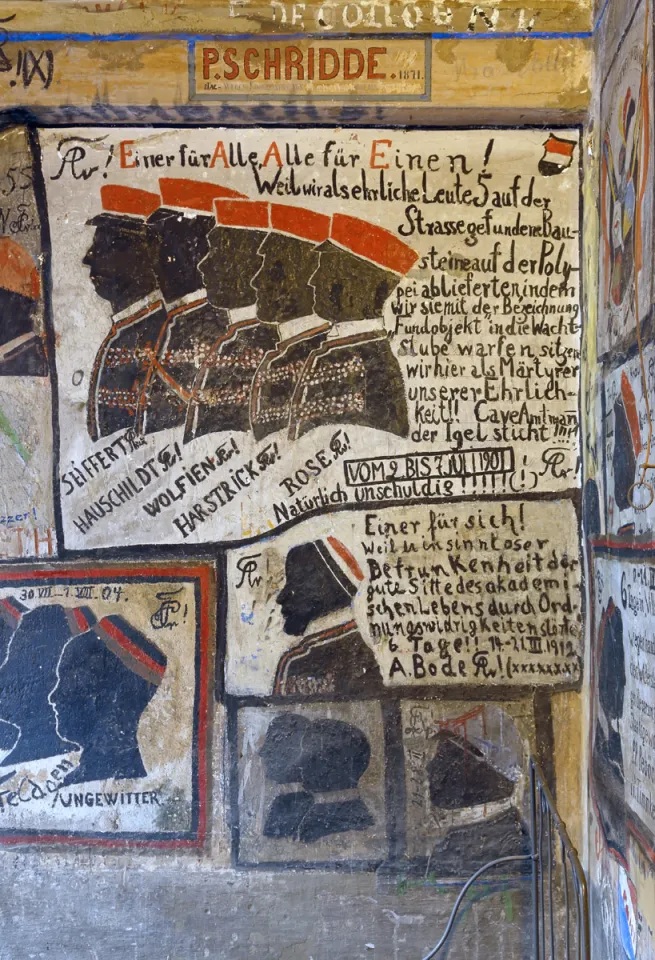 DE COLLOGNE
!(X)
P.SCHRIDDE. 1871.
Einer für Alle, Alle für Einen!
Weil wir als ehrliche Leute 5 auf der
Strasse gefundene Bau-
steine auf der Poly-
pei ablieferten, indem
wir sie mit der Bezeichnung
„Fundobjekt in die Wacht-
stube warfen, sitzen
wir hier als Märtyrer
unserer Ehrlich-
keit!! Cave Amtman
der Igel sticht Ihn!
SEIFFERT
HAUSCHILDT
WOLFIEN
HARSTRICK
ROSE
VOM 2. BIS 7. VII 1901
Natürlich unschuldig !!!!!!(!)
Einer für sich!
Weil er in sinnloser
Betrunkenheit der
gute Sitte des akademi-
schen Lebens durch Ord-
nungswidrigkeiten störte
6 Tage!! 14.-21. III 1912
A. Bode (xxxxxxxx
30.VII.-1.VIII.04.
UNGEWITTER